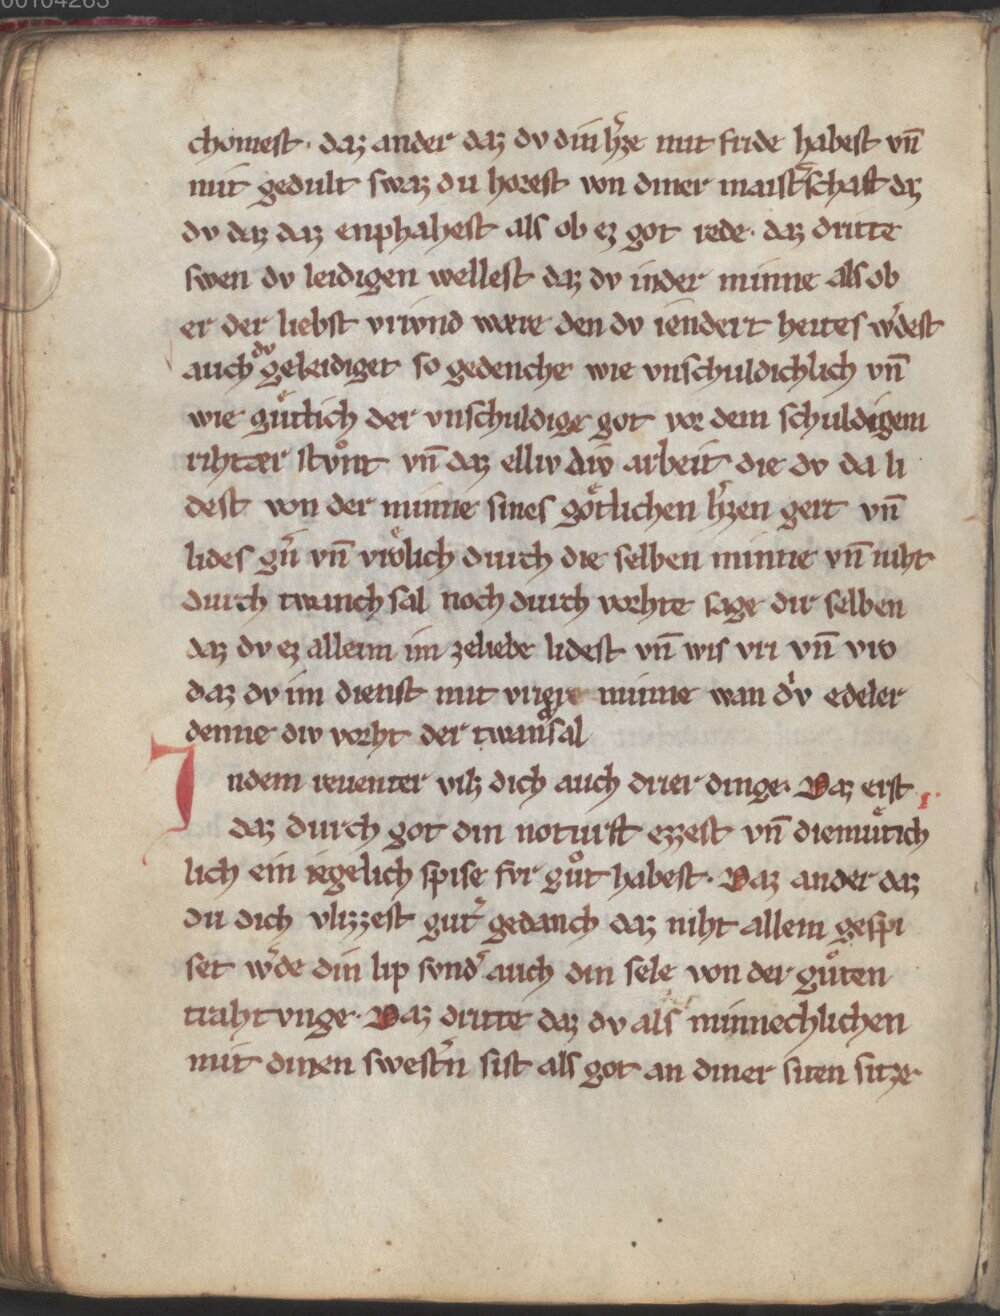 00104263
chomest · daz ander daz dv din h̾ze mit fride habest vn̄
mit gedult swaz du horest von diner maist̾schaft daz
dv daz daz enphahest als ob ez got rede · daz dritte
swen dv leidigen wellest daz dv in der minne als ob
er der liebst vriwnd wære den dv iendert hettes w̾dest
auch dv geleidiget so gedenche wie vnschuldichlich vn̄
wie guͤtlich der vnschuldige got vor dem schuldigem
rihtær stvͦnt vn̄ daz elliv div arbeit die dv da li
dest von der minne sines goͤtlichen h̾zen gert vn̄
lides g̾n vn̄ vroͤlich durch die selben minne vn̄ niht
durch twanch sal noch durch vorhte sage dir selben
daz dv ez allein im ze liebe lidest vn̄ wis vri vn̄ vro
daz dv im dienst mit vrigie minne wan d̾v edeler
denne div vorht der twanͨsal
Indem reuenter vliz dich auch drier dinge · Daz erst
daz durch got din noturft ezzest vn̄ diemuͤtich
lich ein iegelich spise fvr guͦt habest · Daz ander daz
du dich vlizzest gut̾ gedanch daz niht allein gespi
set w̾de din lip svnd̾ auch din sele von der guͦten
trahtvnge · Daz dritte daz dv als minnechlichen
mit dinen swest̾n sist als got an diner siten sitze